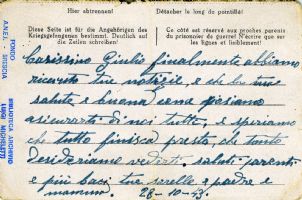 Hier abtrennen!
Détacher le long du pointillé!
Diese Seite ist für die Angehörigen des Kriegsgefangenen bestimmt. Deutlich auf die Zeilen schreiben!
Ce côté est réservé aux proches parents du prisonnier de guerre! N'écrire que sur les lignes et lisiblement!
FONDO
A.N.E.I. BRESCIA
BIBLIOTECA ARCHIVIO
LUIGI MICHELETTI
Carissimo Giulio finalmente abbiamo
ricevuto tue notizie, e che la tua
salute è buona cosa possiamo
assicurarti di noi tutti, e speriamo
che tutto finisca presto, che tanto
desideriamo vederti. saluti parenti
e più baci tue sorelle e padre e
mamma. 28-10-43.